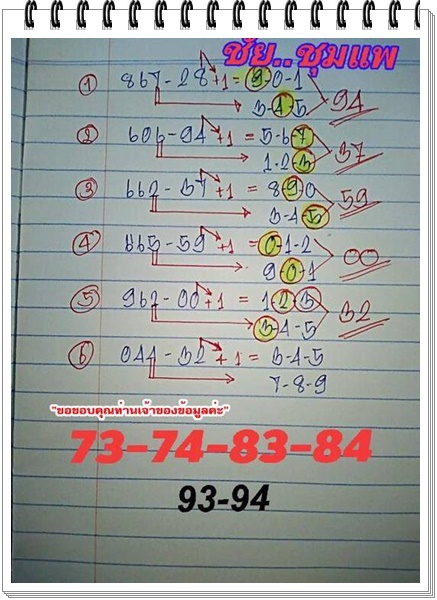 ชัย..ชุมแพ
① 867-28+1 = 9-0-1
3-4-5 94
② 606-94+1 = 5-6-7
1-2-3 37
③ 662-37+1 = 8-9-0
3-4-5 59
④ 665-59+1 = 0-1-2
9-0-1 00
⑤ 962-00+1 = 1-2-3
3-4-5 32
⑥ 044-32+1 = 3-4-5
7-8-9
"ขอขอบคุณท่านเจ้าของข้อมูลค่ะ"
73-74-83-84
93-94